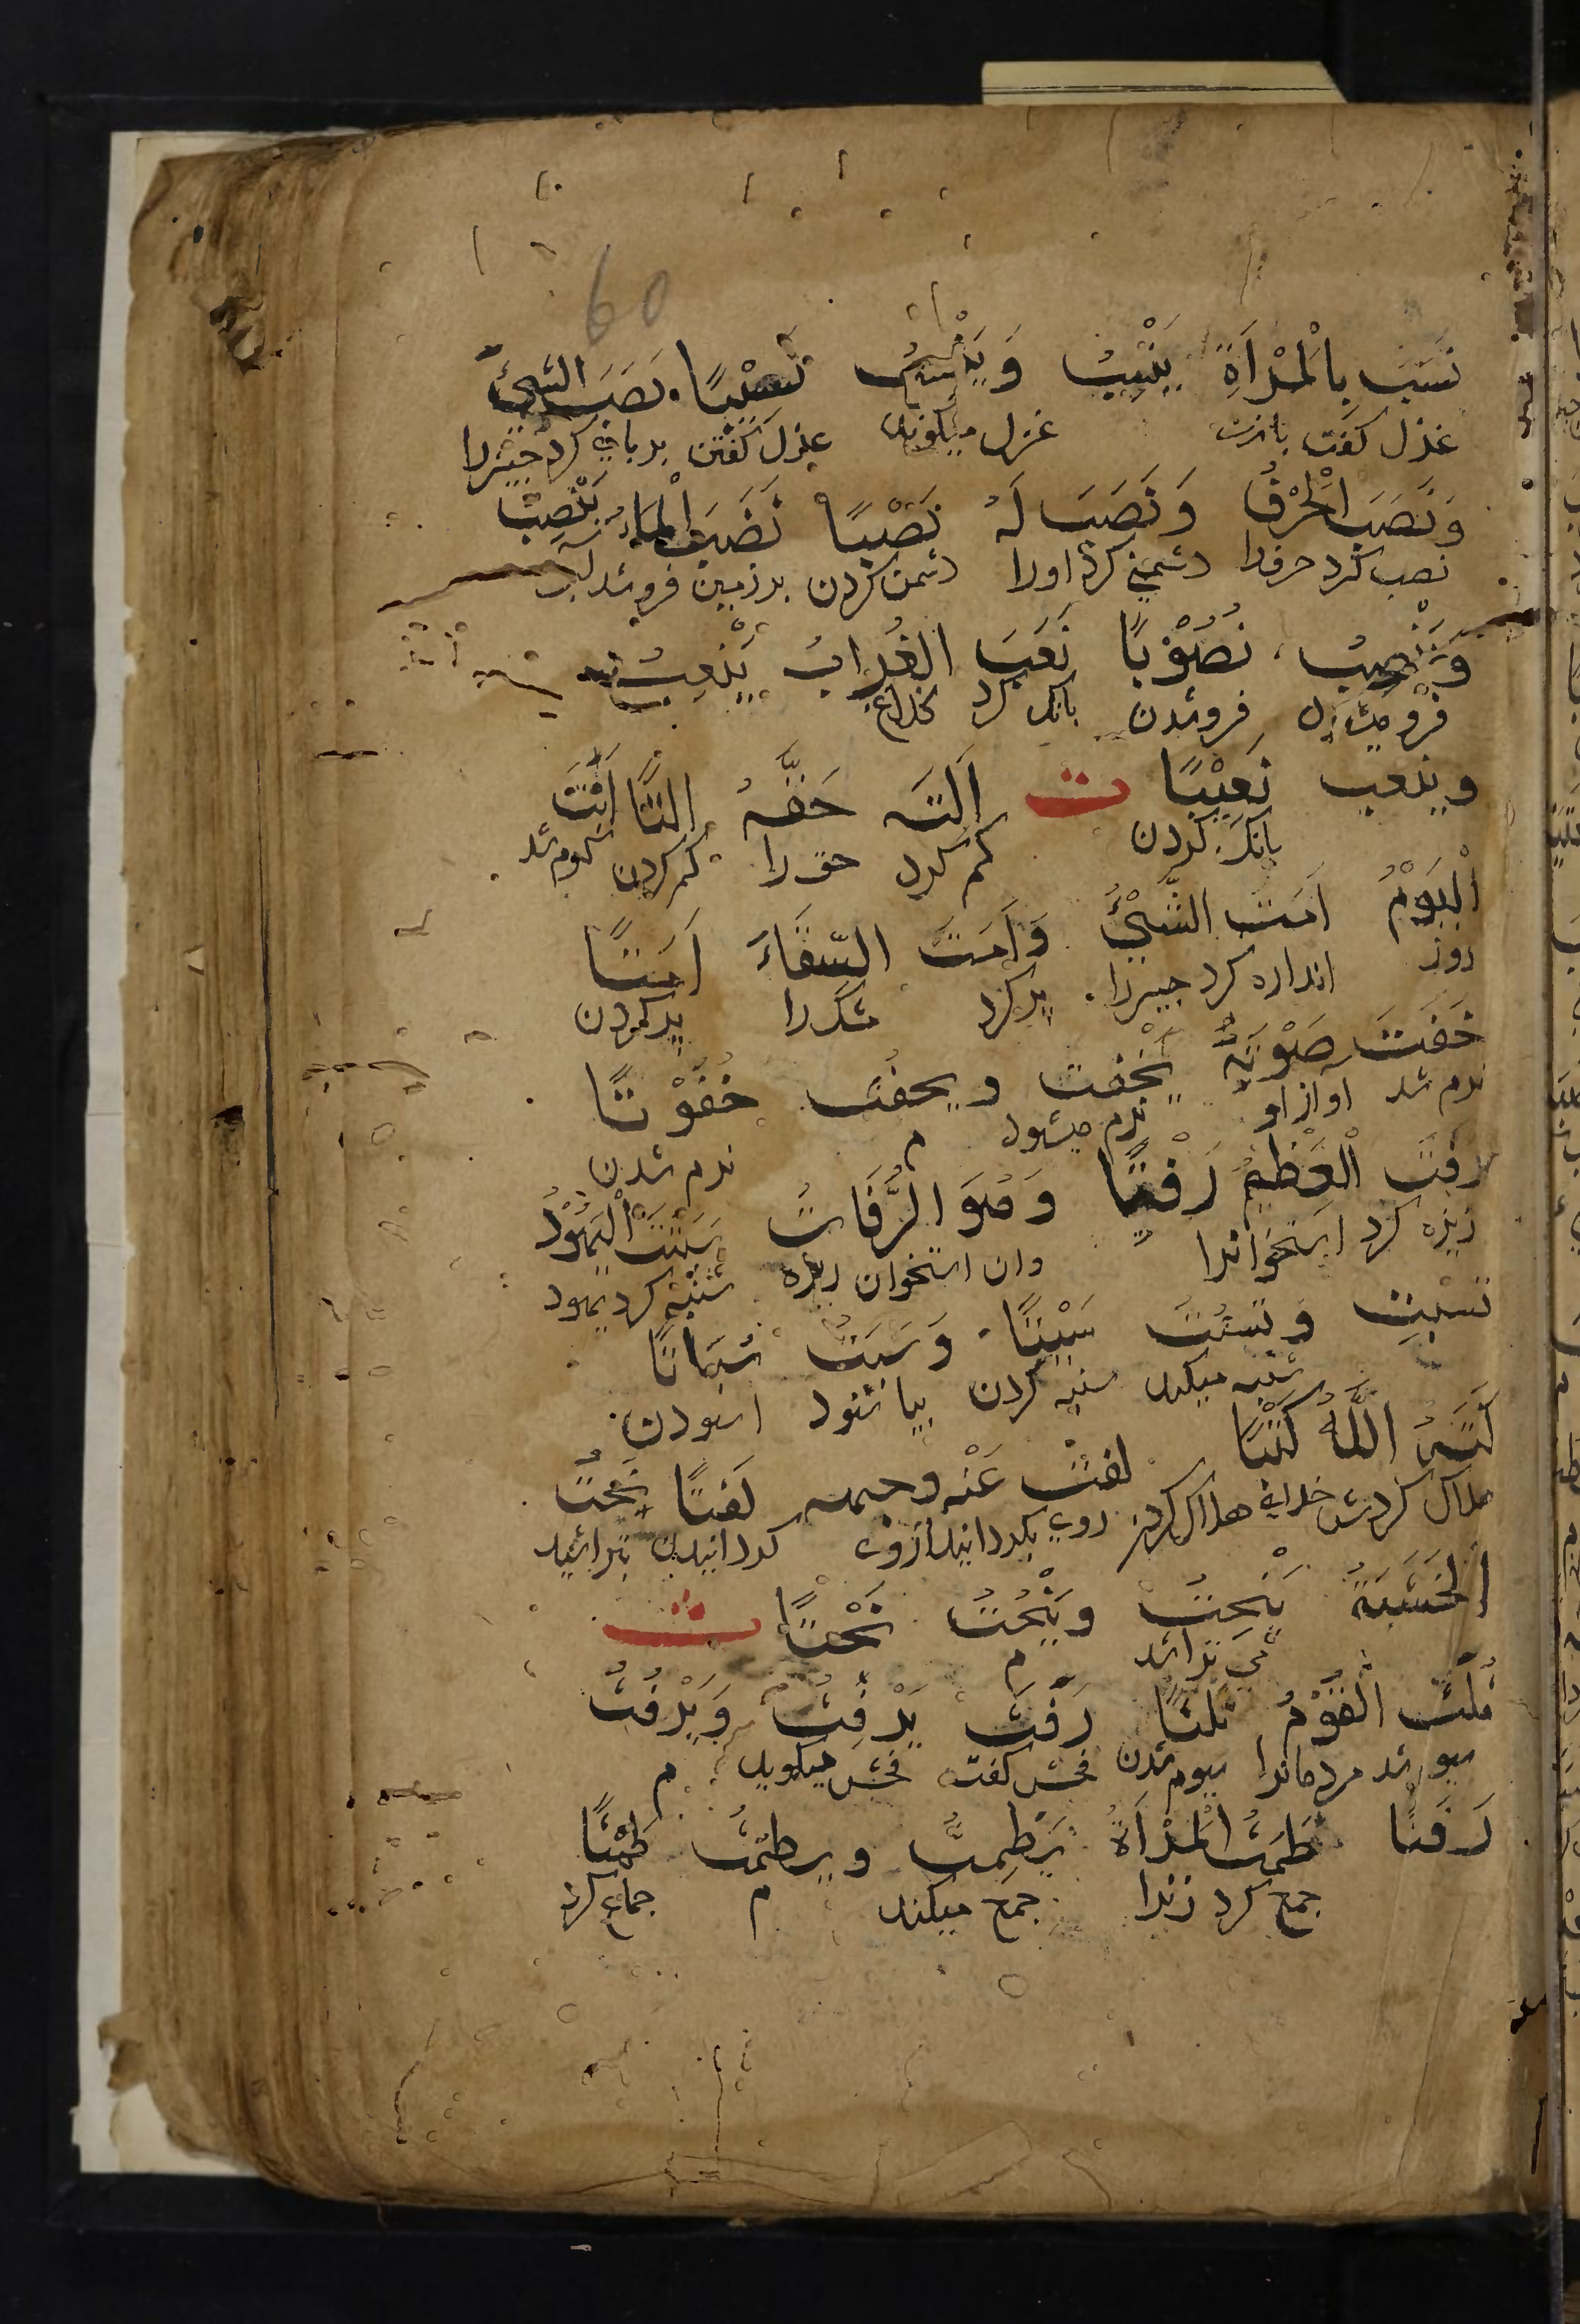 60
نَسَبَ بِالْمَرْأَةِ يَنْسِبُ وَيَنْسُبُ نَسْبًا . نَصَبَ الشَّيْءَ
غزل كفت بازن غزل ميكويد غزل كفتن برپاي كرد چيزرا
وَنَصَبَ الْحَرْفَ وَنَصَبَ لَهُ نَصْبًا نَضَبَ الْمَاءُ يَنْضِبُ
نصب كرد حرفرا دشمني كرد اورا دشمن كردن بر زمين فرو شد آب
وَيَنْضُبُ نُضُوْبًا نَعَبَ الغُرابُ يَنْعِبُ
فرو ميشود فروشدن بانك كرد كلاغ
وينعب نَعِيْبًا ت اَلَتَه حَقَّهُ اَلْتًا اَبَتَ
بانك كردن كم كرد حق را كم كردن كرم شد
الْيَوْمُ اَمَتَ الشَّيْءَ وَاَمَتَ السِّقَاءَ اَمْتًا
روز اندازه كرد چيزرا پر كرد مشكرا پر كردن
خَفَتَ صَوْتُهُ يَخْفِت ويخفُت خُفُوْتًا
نرم شد اواز او نرم ميشود م نرم شدن
رَفَتَ الْعَظْمَ رَفْتًا وَهُوَ الرُّفَاتُ سَبَتَتِ الْيَهُوْدُ
ريزه كرد استخوانرا وان استخوان ريزه شنبه كرد يهود
تَسْبِت وتَسْبُتُ سَبْتًا . وَسَبَتَ سُبَاتًا
شنبه ميكند شنبه كردن بياسود اسودن
كَبَتَهُ اللّٰهُ كَبْتًا لفت عَنْه وجهه لَفْتًا نَحَتَ
هلاك كردش خداي هلاك كردن روي بكردانيد ازوي كردانيدن بتراشيد
الخَشَبَةَ يَنْحِتُ ويَنْحُتُ نَحْتًا ث
مي تراشد م
ثَلَثَ الْقَوْمَ ثَلْثًا رَفَثَ يَرْفِثُ وَيَرْفُثُ
سيوم شد مردمانرا سيوم شدن فحش كفت فحش ميكويد م
رَفَثًا طَمَثَ الْمَرْأَةَ يَطْمِثُ ويطمُث طَمْثًا
جمع كرد زنرا جمع ميكند م جماع كردن